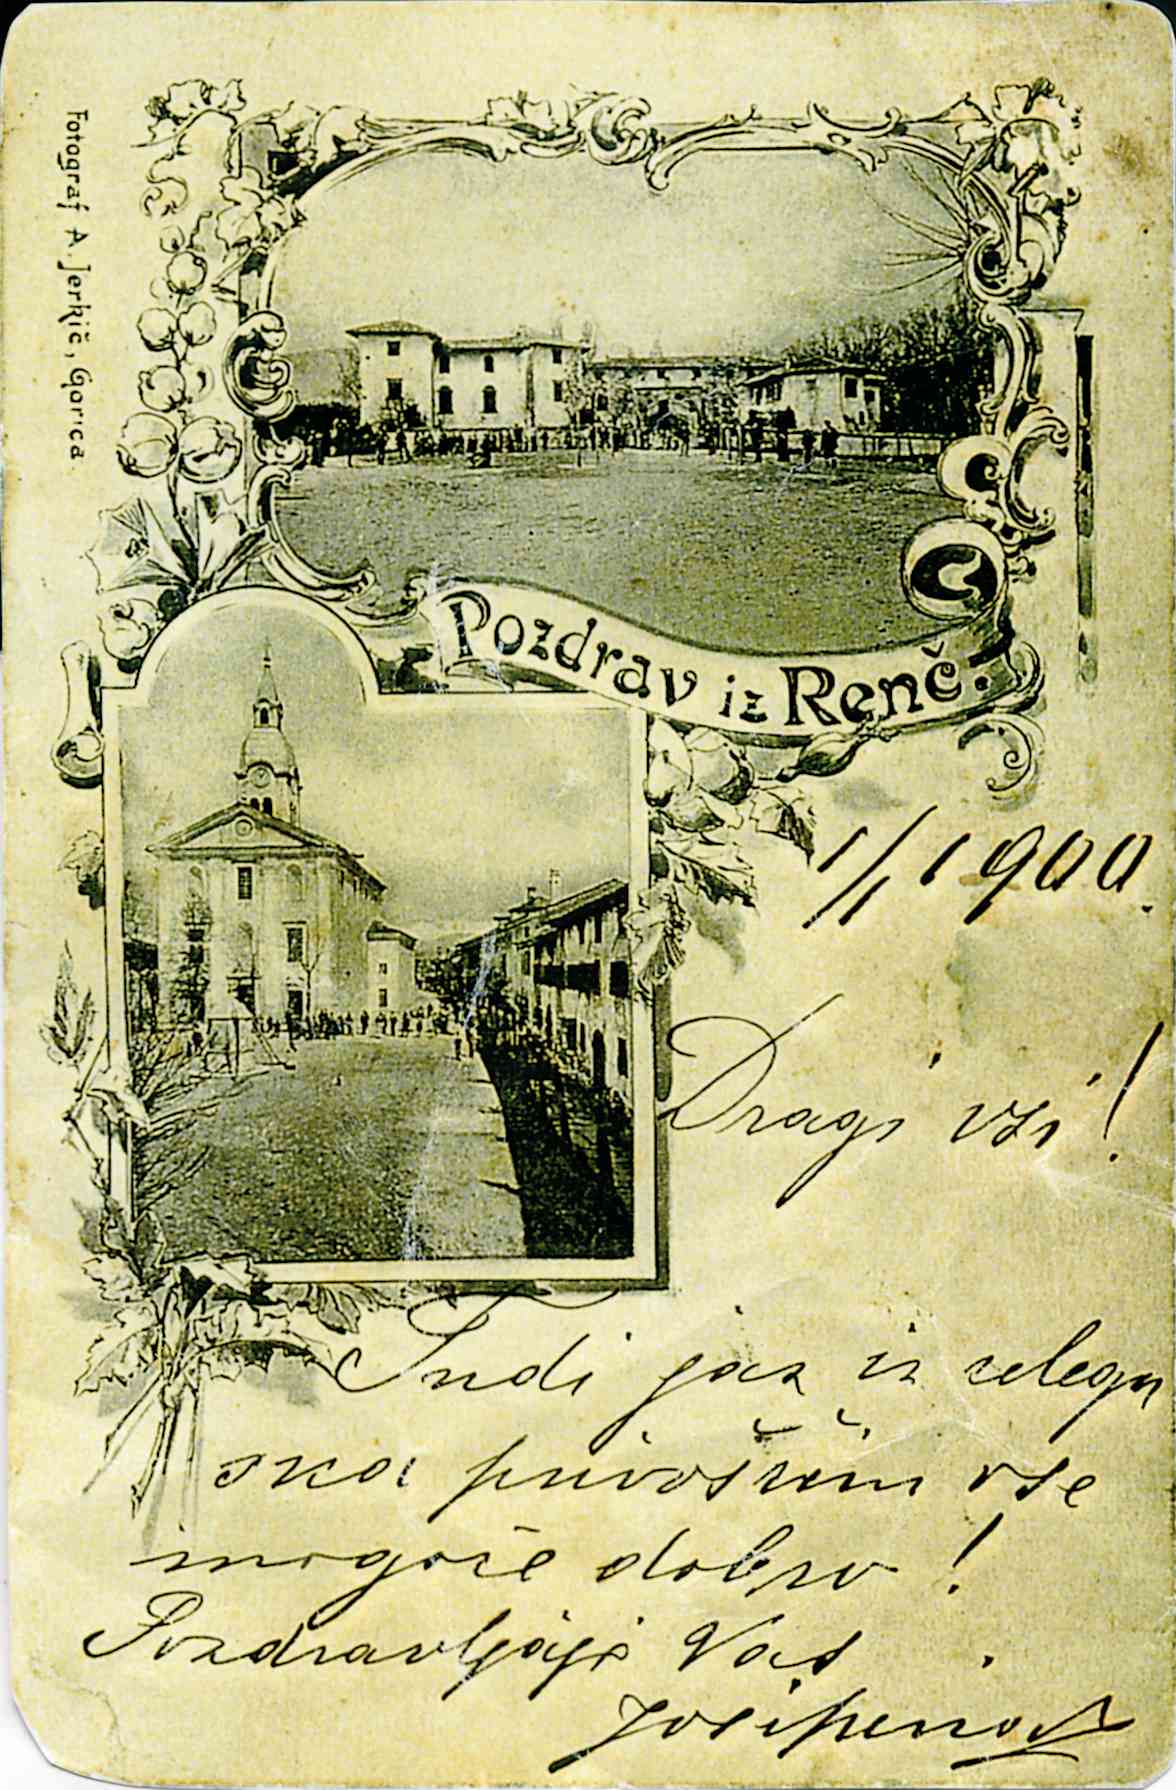 Fotograf A. Jerkič, Gorica
Pozdrav iz Renč.
1/1 1900.
Dragi vsi!
Tudi jaz iz celega
srca privoščim vse
mogoče dobro!
Pozdravljaje Vas